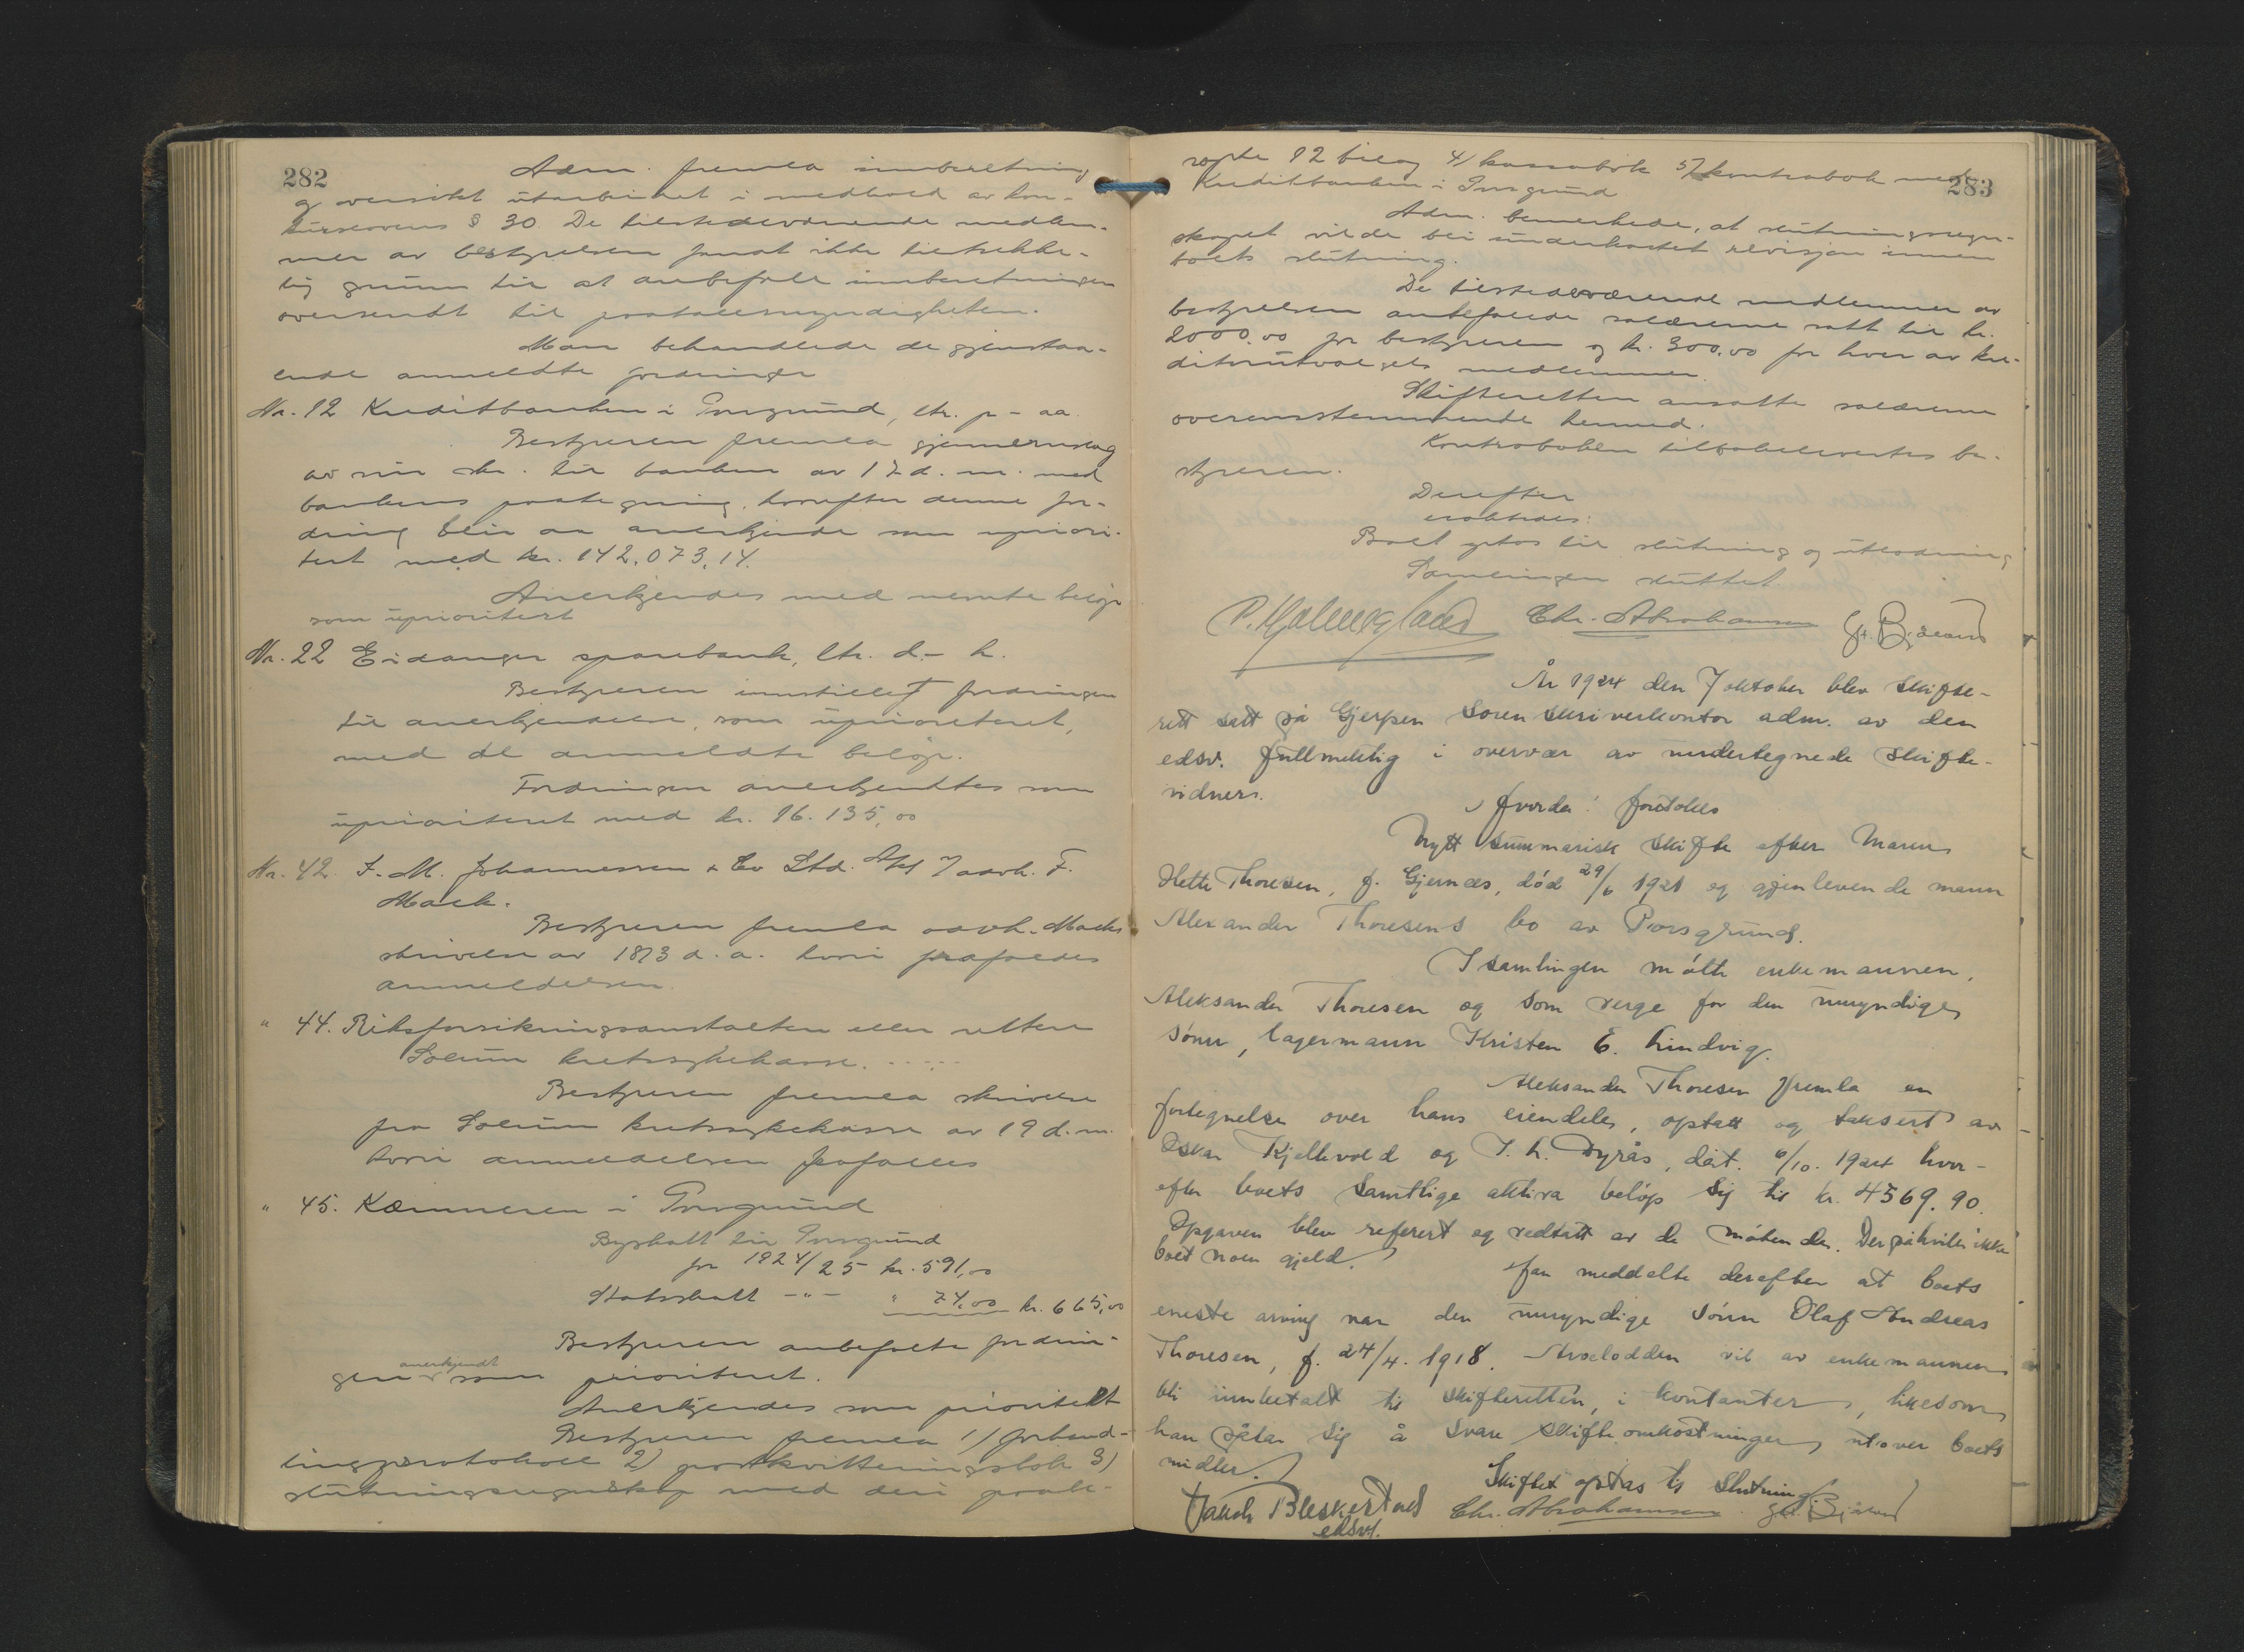 282
Adm. fremla innberetning
og oversikt utarbeidet i medhold av kon-
kurslovens § 30. De tilstedeværende medlem-
mer av bestyrelsen fandt ikke tilstrekke-
lig grunn til at anbefale innberetningen
oversendt til paatalemyndigheten.
Man behandlede de gjenstaa-
ende anmeldte fordringer
Nr. 12 Kreditbanken i Porsgrund, ltr. p - aa.
Bestyreren fremla gjennemslag
av sin skr. til banken av 17 d. m. med
bankens paategning, hvorefter denne for-
dring blir at anerkjende som upriori-
tert med kr. 142.073,14.
Anerkjendes med nevnte beløp
som uprioritert
Nr. 22 Eidanger sparebank, ltr. d - h.
Bestyreren innstillet fordringen
til anerkjendelse, som uprioriteret,
med det anmeldte beløp.
Fordringen anerkjendtes som
uprioriteret med kr. 16.135,00
Nr. 42 J. M. Johannessen & Co Ltd. A/S v/ advk. F.
Mack.
Bestyreren fremla advk. Macks
skrivelse av 18/3 d. a. hvori frafaldes
anmeldelsen.
" 44. Riksforsikringsanstalten eller rettere
Solum kretssykekasse.
Bestyreren fremla skrivelse
fra Solum kretssykekasse av 19 d. m.
hvori anmeldelsen frafalles
" 45. Kæmneren i Porsgrund
Byskatt til Porsgrund
for 1924/25 kr. 591,00
Statsskatt -"- " 74,00 kr. 665,00
Bestyreren anbefalte fordrin-
anerkjendt
gen som prioriteret.
Anerkjendes som prioritert
Bestyreren fremla 1) forhand-
lingsprotokoll 2) postkvitteringsbok 3)
slutningsregnskap med dertil
283
12 bilag 4) kassabok 5) kontrabok med
Kreditbanken i Porsgrund
Adm. bemerkede, at slutningsregn-
skapet vilde bli underkastet revisjon innen
boets slutning.
De tilstedeværende medlemmer av
bestyrelsen anbefalede salærerne satt til kr.
2000,00 for bestyreren og kr. 300,00 for hver av kre-
ditorutvalgets medlemmer.
Skifteretten ansatte salærerne
overensstemmende hermed.
Kontraboken tilbakelevertes be-
styreren.
Derefter
besluttedes:
Boet optas til slutning og utlodning
Samlingen sluttet.
Chr. Abrahamsen
År 1924 den 7 oktober blev skifte-
rett satt på Gjerpen sorenskriverkontor adm. av den
edsv. fullmektig i overvær av undertegnede skifte-
vidner.
Hvorda! foretokes
Nytt summarisk skifte efter Maren
Hette Thoresen, f. Gjernæs, død 29/6 1921 og gjenlevende mann
Alexander Thoresens bo av Porsgrund.
I samlingen møtte enkemannen,
Aleksander Thoresen og som verge for den umyndige
sønn, lagermann Kristen E. Lindvig.
Aleksander Thoresen fremla en
fortegnelse over hans eiendeler, optatt og taksert av
Oskar Kjellevold og J. L. Dyrås, dat. 6/10. 1924 hvor-
efter boets samtlige aktiva beløp sig til kr. 4569.90.
Opgaven blev referert og vedtatt av de møtende. Der påhviler ikke
boet noen gjeld.
Han meddelte derefter at boets
eneste arving var den umyndige sønn Olaf Andreas
Thoresen, f. 24/4. 1918. Arvelodden vil av enkemannen
bli innbetalt til skifteretten, i kontanter, likesom
han påtar sig å svare skifteomkostninger utover boets
midler.
Skiftet optas til slutning
Jakob Bleskestad Chr. Abrahamsen
edsv.